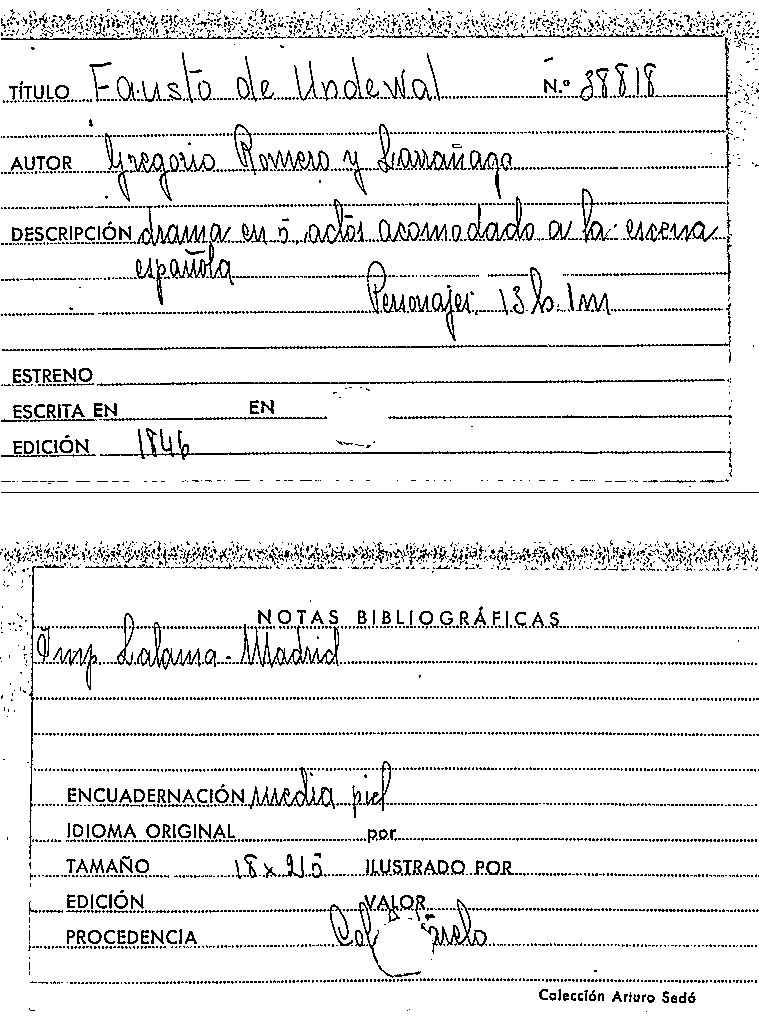 TÍTULO Fausto de Underwal N.º 38818
AUTOR Gregorio Romero y Larrañaga
DESCRIPCIÓN drama en 5 actos acomodado a la escena
española
Personajes: 13 h. 1m
ESTRENO
ESCRITA EN EN
EDICIÓN 1846
NOTAS BIBLIOGRÁFICAS
Imp Lalama - Madrid
ENCUADERNACIÓN media piel
IDIOMA ORIGINAL por
TAMAÑO 18 x 215 ILUSTRADO POR
EDICIÓN VALOR
PROCEDENCIA Col
Colección Arturo Sedó